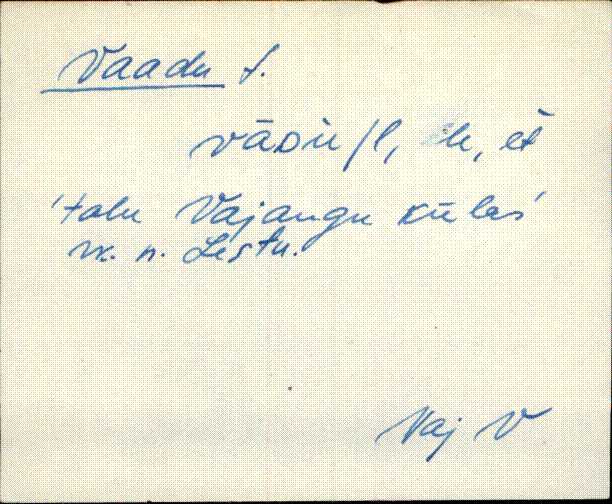 Vaadu t.
vāDu /l, le, et
'talu Vajangu külas'
vr. n. Lestu.
Vaj V